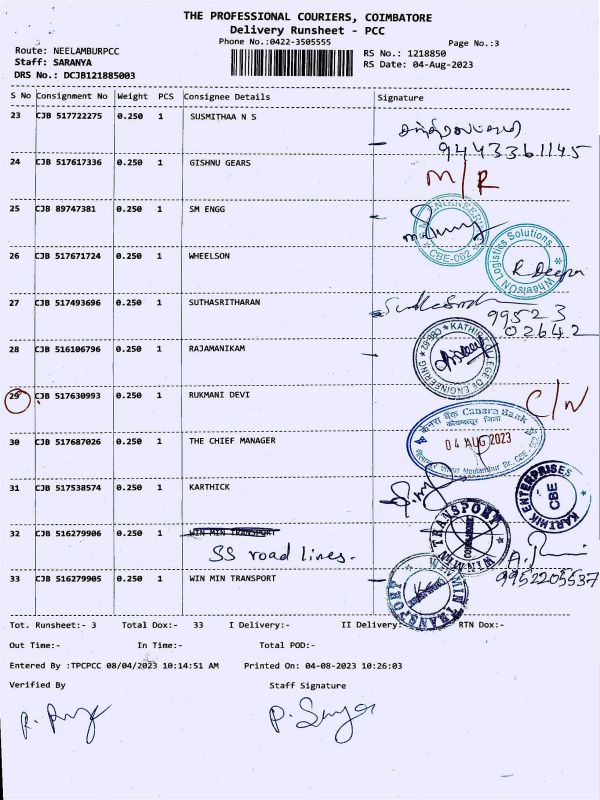 THE PROFESSIONAL COURIERS, COIMBATORE
Delivery Runsheet - PCC
Phone No.:0422-3505555
Page No.:3
Route: NEELAMBURPCC
RS No.: 1218850
Staff: SARANYA
RS Date: 04-Aug-2023
DRS No.: DCJB121885003
S No Consignment No Weight PCS Consignee Details Signature
23 CJB 517722275 0.250 1 SUSMITHAA N S
9443361145
24 CJB 517617336 0.250 1 GISHNU GEARS
M/R
25 CJB 89747381 0.250 1 SM ENGG
CBE-062
26 CJB 517671724 0.250 1 WHEELSON
WheelsON Logistics Solutions
R Deepa
27 CJB 517493696 0.250 1 SUTHASRITHARAN
99523
02642
28 CJB 516106796 0.250 1 RAJAMANIKAM
KATHIR COLLEGE OF ENGINEERING
CBE-62
29 CJB 517630993 0.250 1 RUKMANI DEVI
C/N
30 CJB 517687026 0.250 1 THE CHIEF MANAGER
केनरा बैंक Canara Bank
04 AUG 2023
Neelambur Br. CBE
31 CJB 517538574 0.250 1 KARTHICK
KARTHIK ENTERPRISES
CBE
32 CJB 516279906 0.250 1 WIN MIN TRANSPORT
SS road lines.
WINWIN TRANSPORT
33 CJB 516279905 0.250 1 WIN MIN TRANSPORT
9952205537
TRANSPORT
Tot. Runsheet:- 3 Total Dox:- 33 I Delivery:- II Delivery:- RTN Dox:-
Out Time:- In Time:- Total POD:-
Entered By :TPCPCC 08/04/2023 10:14:51 AM Printed On: 04-08-2023 10:26:03
Verified By Staff Signature